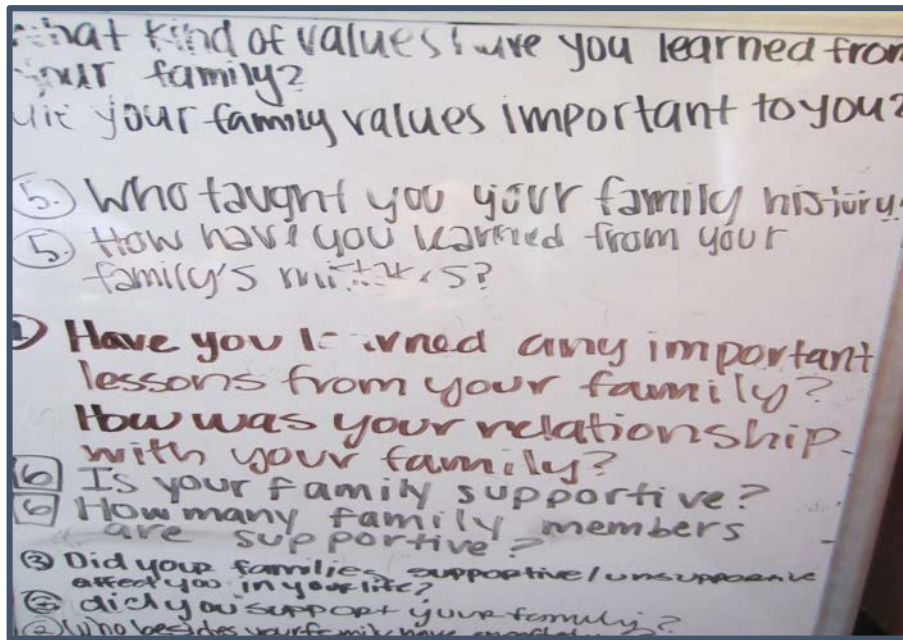 What kind of values have you learned from
your family?
are your family values important to you?
5. Who taught you your family history
5. How have you learned from your
family's mistakes?
Have you learned any important
lessons from your family?
How was your relationship
with your family?
6 Is your family supportive?
6 How many family members
are supportive?
3 Did your families supportive/unsupportive
affect you in your life?
did you support your family?
2 Who besides your family have